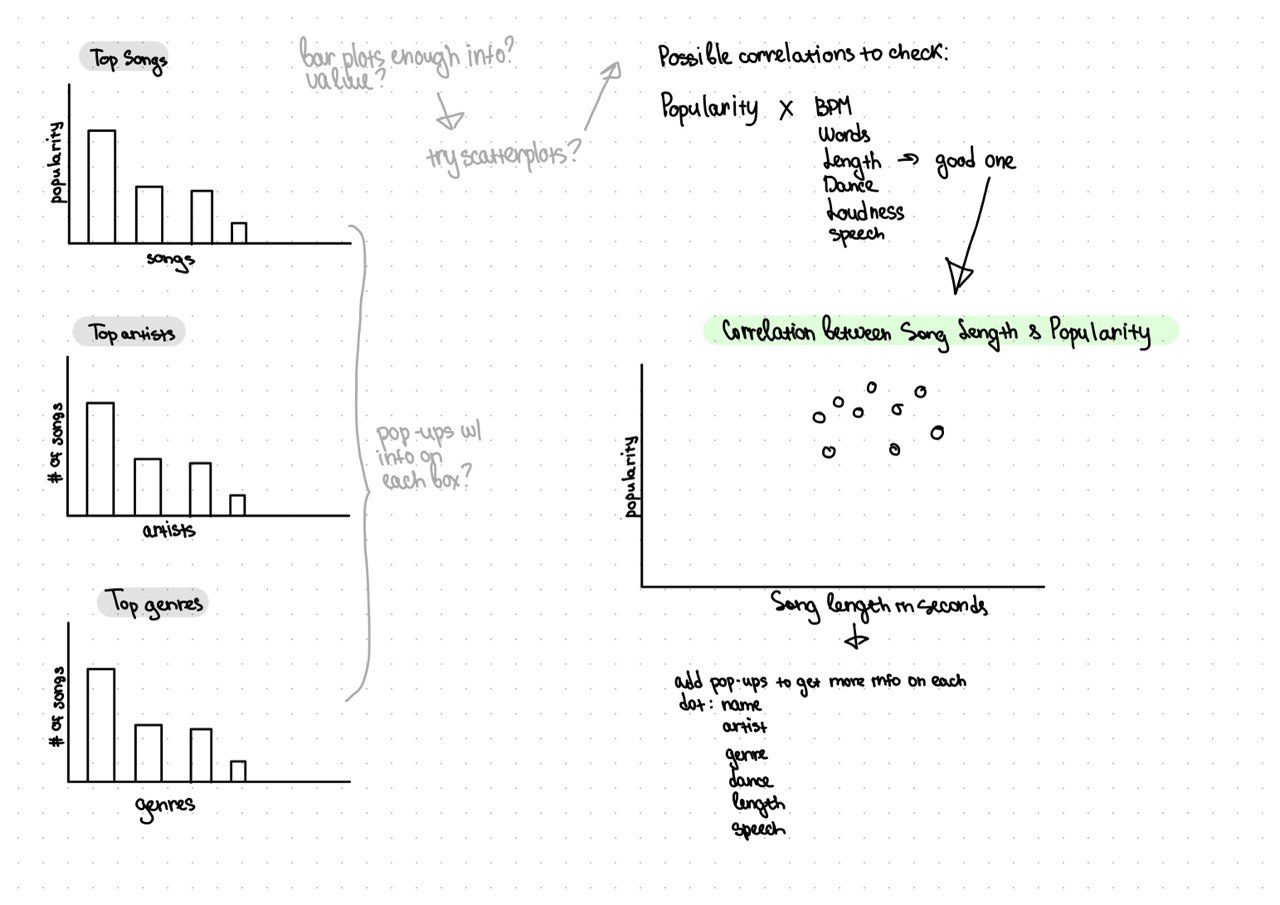 Top Songs
popularity
songs
Top artists
# of songs
artists
Top genres
# of songs
genres
bar plots enough info?
value?
try scatterplots?
pop-ups w/
info on
each box?
Possible correlations to check:
Popularity X BPM
Words
Length → good one
Dance
Loudness
speech
Correlation between Song Length & Popularity
popularity
Song length in seconds
add pop-ups to get more info on each
dot: name
artist
genre
dance
length
speech